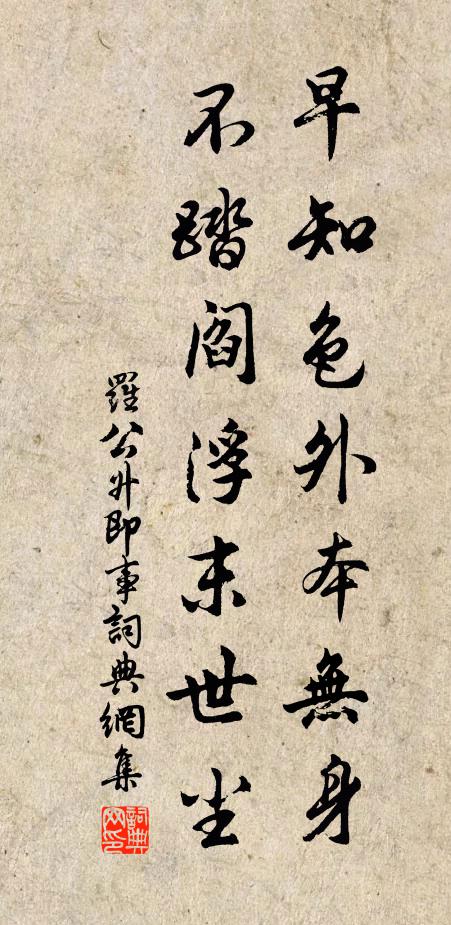 早知色外本無身
不踏閻浮末世尘
羅公升即事詞典網集
詞典
网印